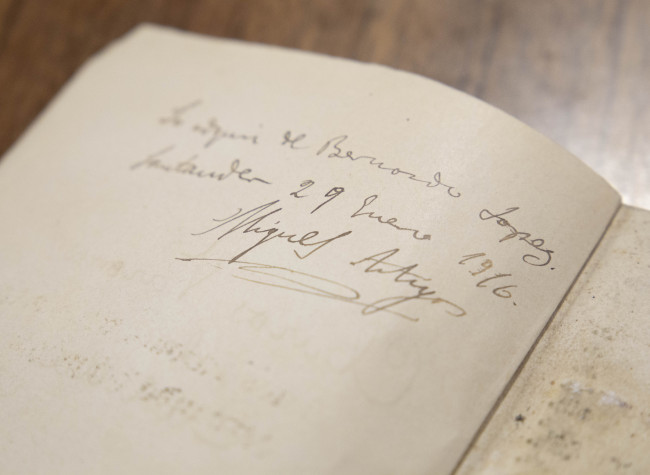 Lo adquirí de Bernardo Lopez.
Santander 29 Enero 1916.
Miguel Artigas